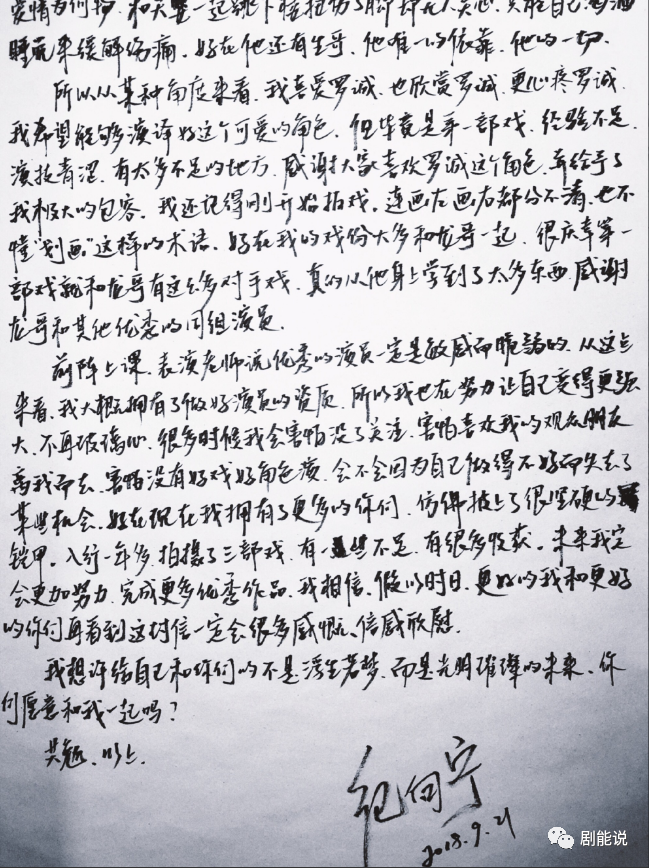 爱情为何物，和天瑩一起跳下楼扭伤了脚却无人关心，只能自己喝酒
睡觉来缓解伤痛，好在他还有生哥，他有一的依靠，他的一切。
所以从某种角度来看，我喜爱罗诚，也欣赏罗诚，更心疼罗诚，
我希望能够演译好这个可爱的角色，但毕竟是第一部戏，经验不足，
演技青涩，有太多不足的地方，感谢大家喜欢罗诚这个角色，并给予了
我极大的包容。我还记得刚开始拍戏，连画左画右都分不清，也不
懂“划画”这样的术语，好在我的戏份大多和龙哥一起，很庆幸第一
部戏就和龙哥有这么多对手戏，真的从他身上学到了太多东西，感谢
龙哥和其他优秀的同组演员。
前阵上课，表演老师说优秀的演员一定是敏感而脆弱的，从这点
来看，我大概拥有了做好演员的资质，所以我也在努力让自己变得更强
大，不再玻璃心，很多时候我会害怕没了关注，害怕喜欢我的观众朋友
离我而去，害怕没有好戏好角色演，会不会因为自己做得不好而失去了
某些机会，好在现在我拥有了更多的你们，仿佛披上了很坚硬的
铠甲，入行一年多，拍摄了三部戏，有一些不足，有很多收获，未来我定
会更加努力，完成更多优秀作品，我相信，假以时日，更好的我和更好
的你们再看到这封信一定会很多感慨、倍感欣慰。
我想许给自己和你们的不是浮生若梦，而是光明璀璨的未来，你
们愿意和我一起吗？
共勉，以上
纪向宁
2018.9.21
剧能说